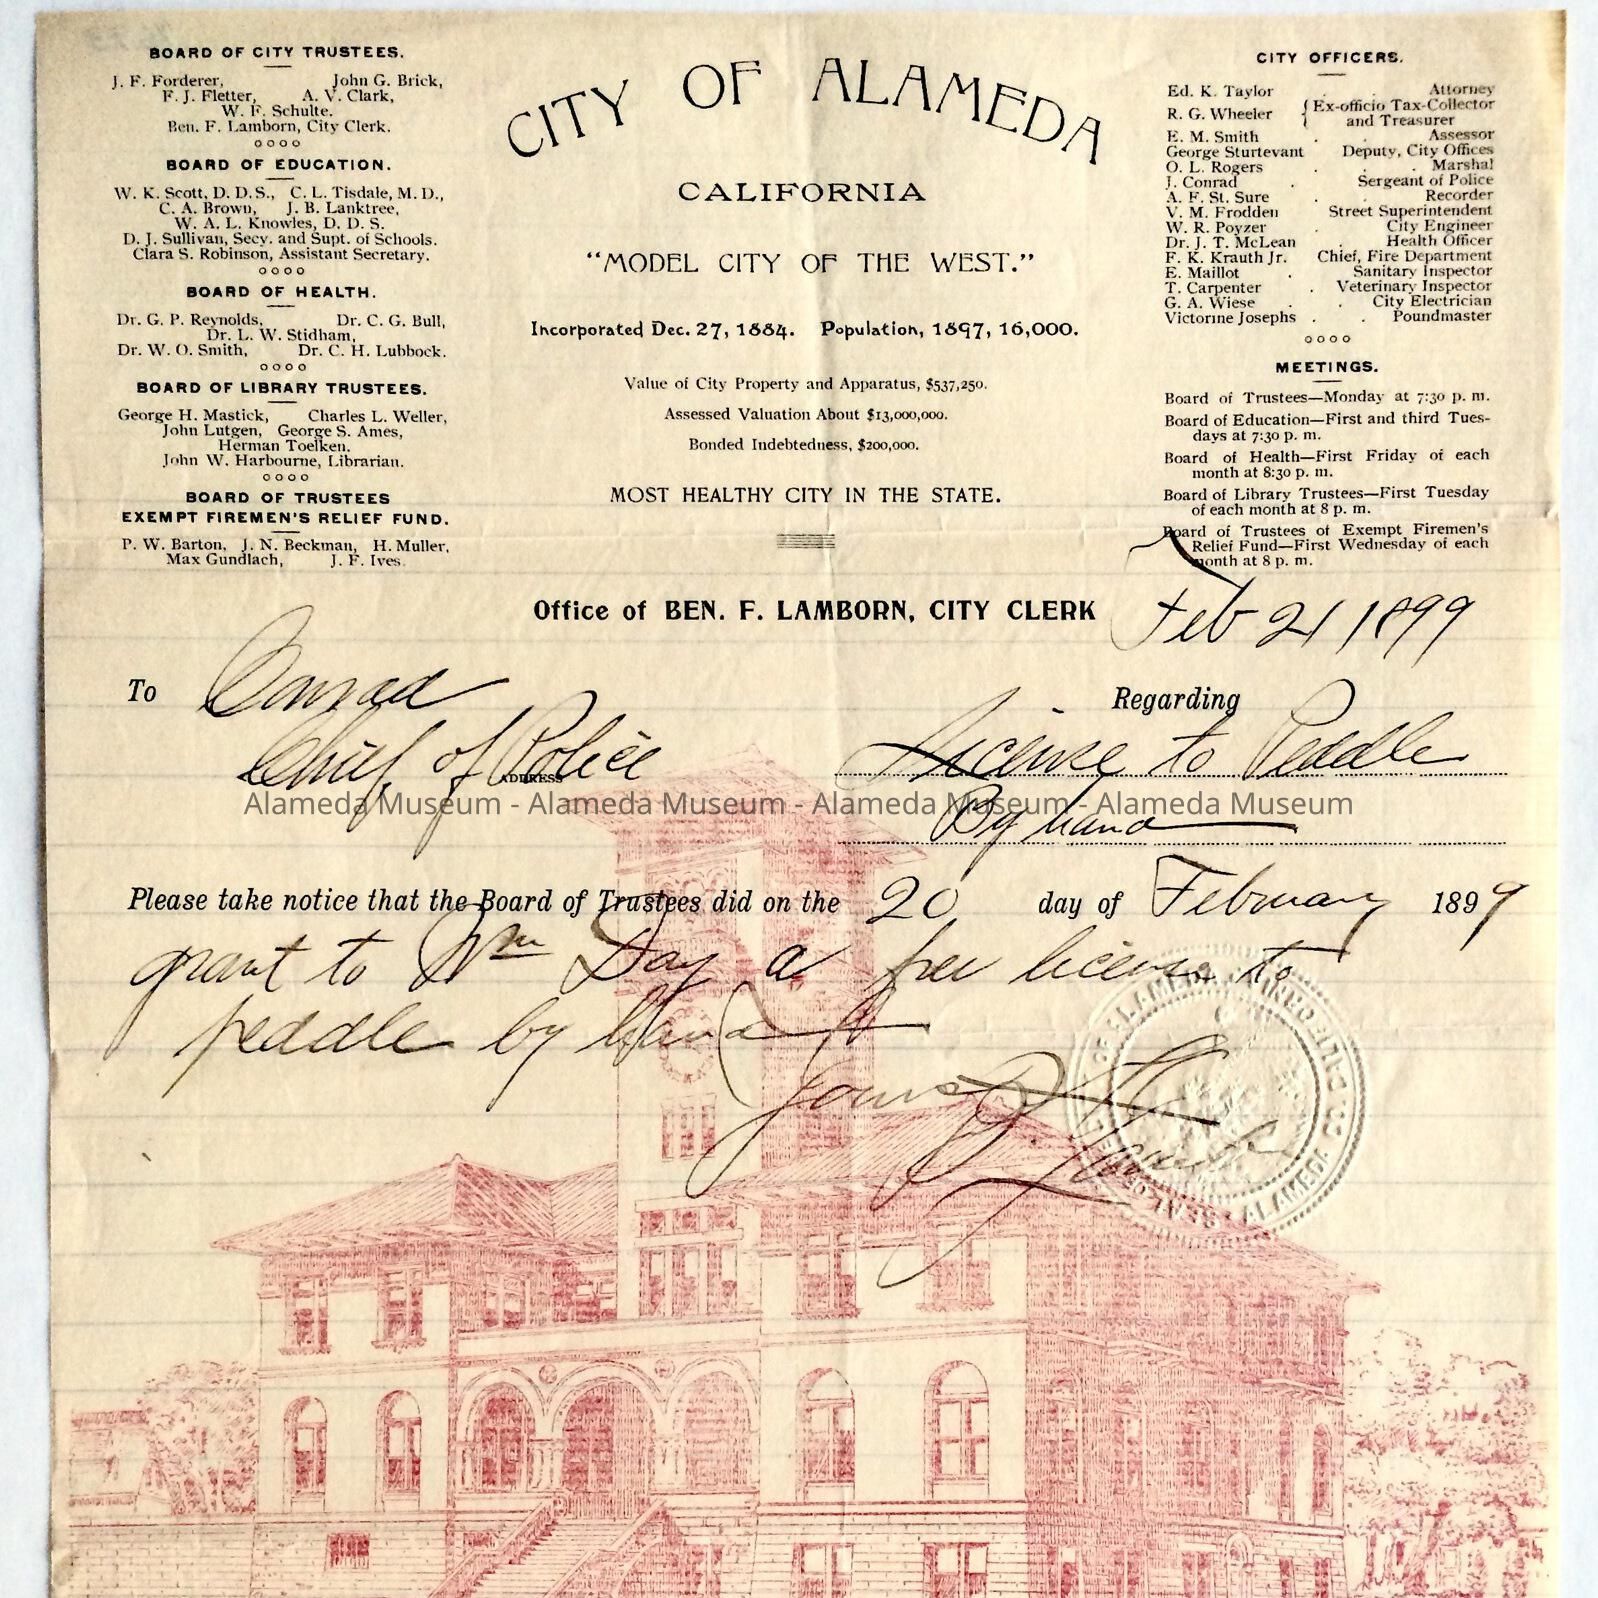 BOARD OF CITY TRUSTEES.
J. F. Forderer, John G. Brick,
F. J. Fletter, A. V. Clark,
W. F. Schulte.
Ben. F. Lamborn, City Clerk.
BOARD OF EDUCATION.
W. K. Scott, D. D. S., C. L. Tisdale, M. D.,
C. A. Brown, J. B. Lanktree,
W. A. L. Knowles, D. D. S.
D. J. Sullivan, Secy. and Supt. of Schools.
Clara S. Robinson, Assistant Secretary.
BOARD OF HEALTH.
Dr. G. P. Reynolds, Dr. C. G. Bull,
Dr. L. W. Stidham,
Dr. W. O. Smith, Dr. C. H. Lubbock.
BOARD OF LIBRARY TRUSTEES.
George H. Mastick, Charles L. Weller,
John Lutgen, George S. Ames,
Herman Toelken.
John W. Harbourne, Librarian.
BOARD OF TRUSTEES
EXEMPT FIREMEN'S RELIEF FUND.
P. W. Barton, J. N. Beckman, H. Muller,
Max Gundlach, J. F. Ives.
CITY OF ALAMEDA
CALIFORNIA
"MODEL CITY OF THE WEST."
Incorporated Dec. 27, 1884. Population, 1897, 16,000.
Value of City Property and Apparatus, $537,250.
Assessed Valuation About $13,000,000.
Bonded Indebtedness, $200,000.
MOST HEALTHY CITY IN THE STATE.
CITY OFFICERS.
Ed. K. Taylor . . Attorney
R. G. Wheeler { Ex-officio Tax-Collector
and Treasurer
E. M. Smith . . Assessor
George Sturtevant Deputy, City Offices
O. L. Rogers . . Marshal
J. Conrad . Sergeant of Police
A. F. St. Sure . . Recorder
V. M. Frodden Street Superintendent
W. R. Poyzer . City Engineer
Dr. J. T. McLean . Health Officer
F. K. Krauth Jr. Chief, Fire Department
E. Maillot . Sanitary Inspector
T. Carpenter . Veterinary Inspector
G. A. Wiese . . City Electrician
Victorine Josephs . . Poundmaster
MEETINGS.
Board of Trustees—Monday at 7:30 p. m.
Board of Education—First and third Tues-
days at 7:30 p. m.
Board of Health—First Friday of each
month at 8:30 p. m.
Board of Library Trustees—First Tuesday
of each month at 8 p. m.
Board of Trustees of Exempt Firemen's
Relief Fund—First Wednesday of each
month at 8 p. m.
Office of BEN. F. LAMBORN, CITY CLERK Feb 21 1899
To Conrad Regarding
Chief of Police License to Peddle
ADDRESS
Alameda Museum - Alameda Museum - Alameda Museum - Alameda Museum
By hand
Please take notice that the Board of Trustees did on the 20 day of February 1899
grant to Wm Day a free license to
peddle by hand
Yours
SEAL OF ALAMEDA